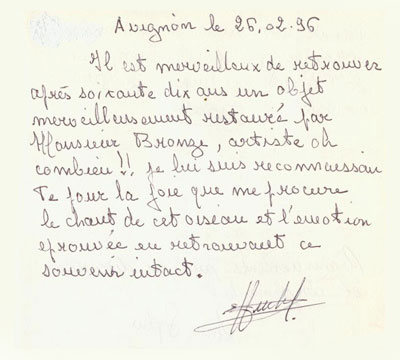 Avignon le 26.02.96
Il est merveilleux de retrouver
après soixante dix ans un objet
merveilleusement restauré par
Monsieur Bronzi, artiste oh
combien!! je lui suis reconnaissan
te pour la joie que me procure
le chant de cet oiseau et l'émotion
éprouvée en retrouvant ce
souvenir intact.